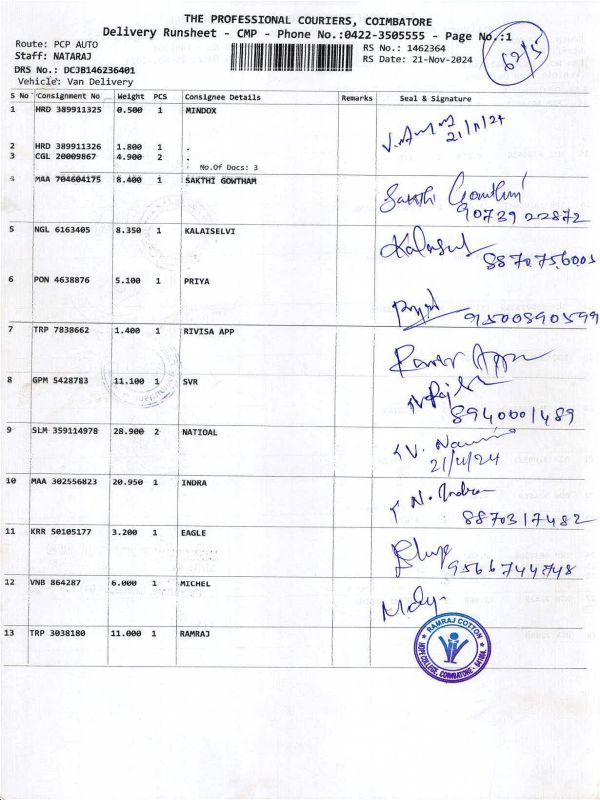 THE PROFESSIONAL COURIERS, COIMBATORE
Delivery Runsheet - CMP - Phone No.:0422-3505555 - Page No.:1
Route: PCP AUTO
Staff: NATARAJ
DRS No.: DCJB146236401
Vehicle: Van Delivery
RS No.: 1462364
RS Date: 21-Nov-2024
62/5
S No Consignment No Weight PCS Consignee Details Remarks Seal & Signature
1 HRD 389911325 0.500 1 MINDOX
21/11/24
2 HRD 389911326 1.800 1 .
3 CGL 20009867 4.900 2 .
No.Of Docs: 3
4 MAA 704604175 8.400 1 SAKTHI GOWTHAM
Sakthi Gowtham
90739 22872
5 NGL 6163405 8.350 1 KALAISELVI
8870756005
6 PON 4638876 5.100 1 PRIYA
9500890599
7 TRP 7838662 1.400 1 RIVISA APP
8 GPM 5428783 11.100 1 SVR
8940001489
9 SLM 359114978 28.900 2 NATIOAL
21/11/24
10 MAA 302556823 20.950 1 INDRA
N. Indra
8870317482
11 KRR 50105177 3.200 1 EAGLE
9566744748
12 VNB 864287 6.000 1 MICHEL
13 TRP 3038180 11.000 1 RAMRAJ
RAMRAJ COTTON
HOPE COLLEGE, COIMBATORE